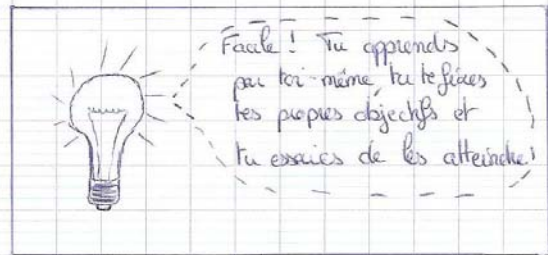 Facile ! Tu apprends
par toi-même tu te fixes
tes propres objectifs et
tu essaies de les atteindre !